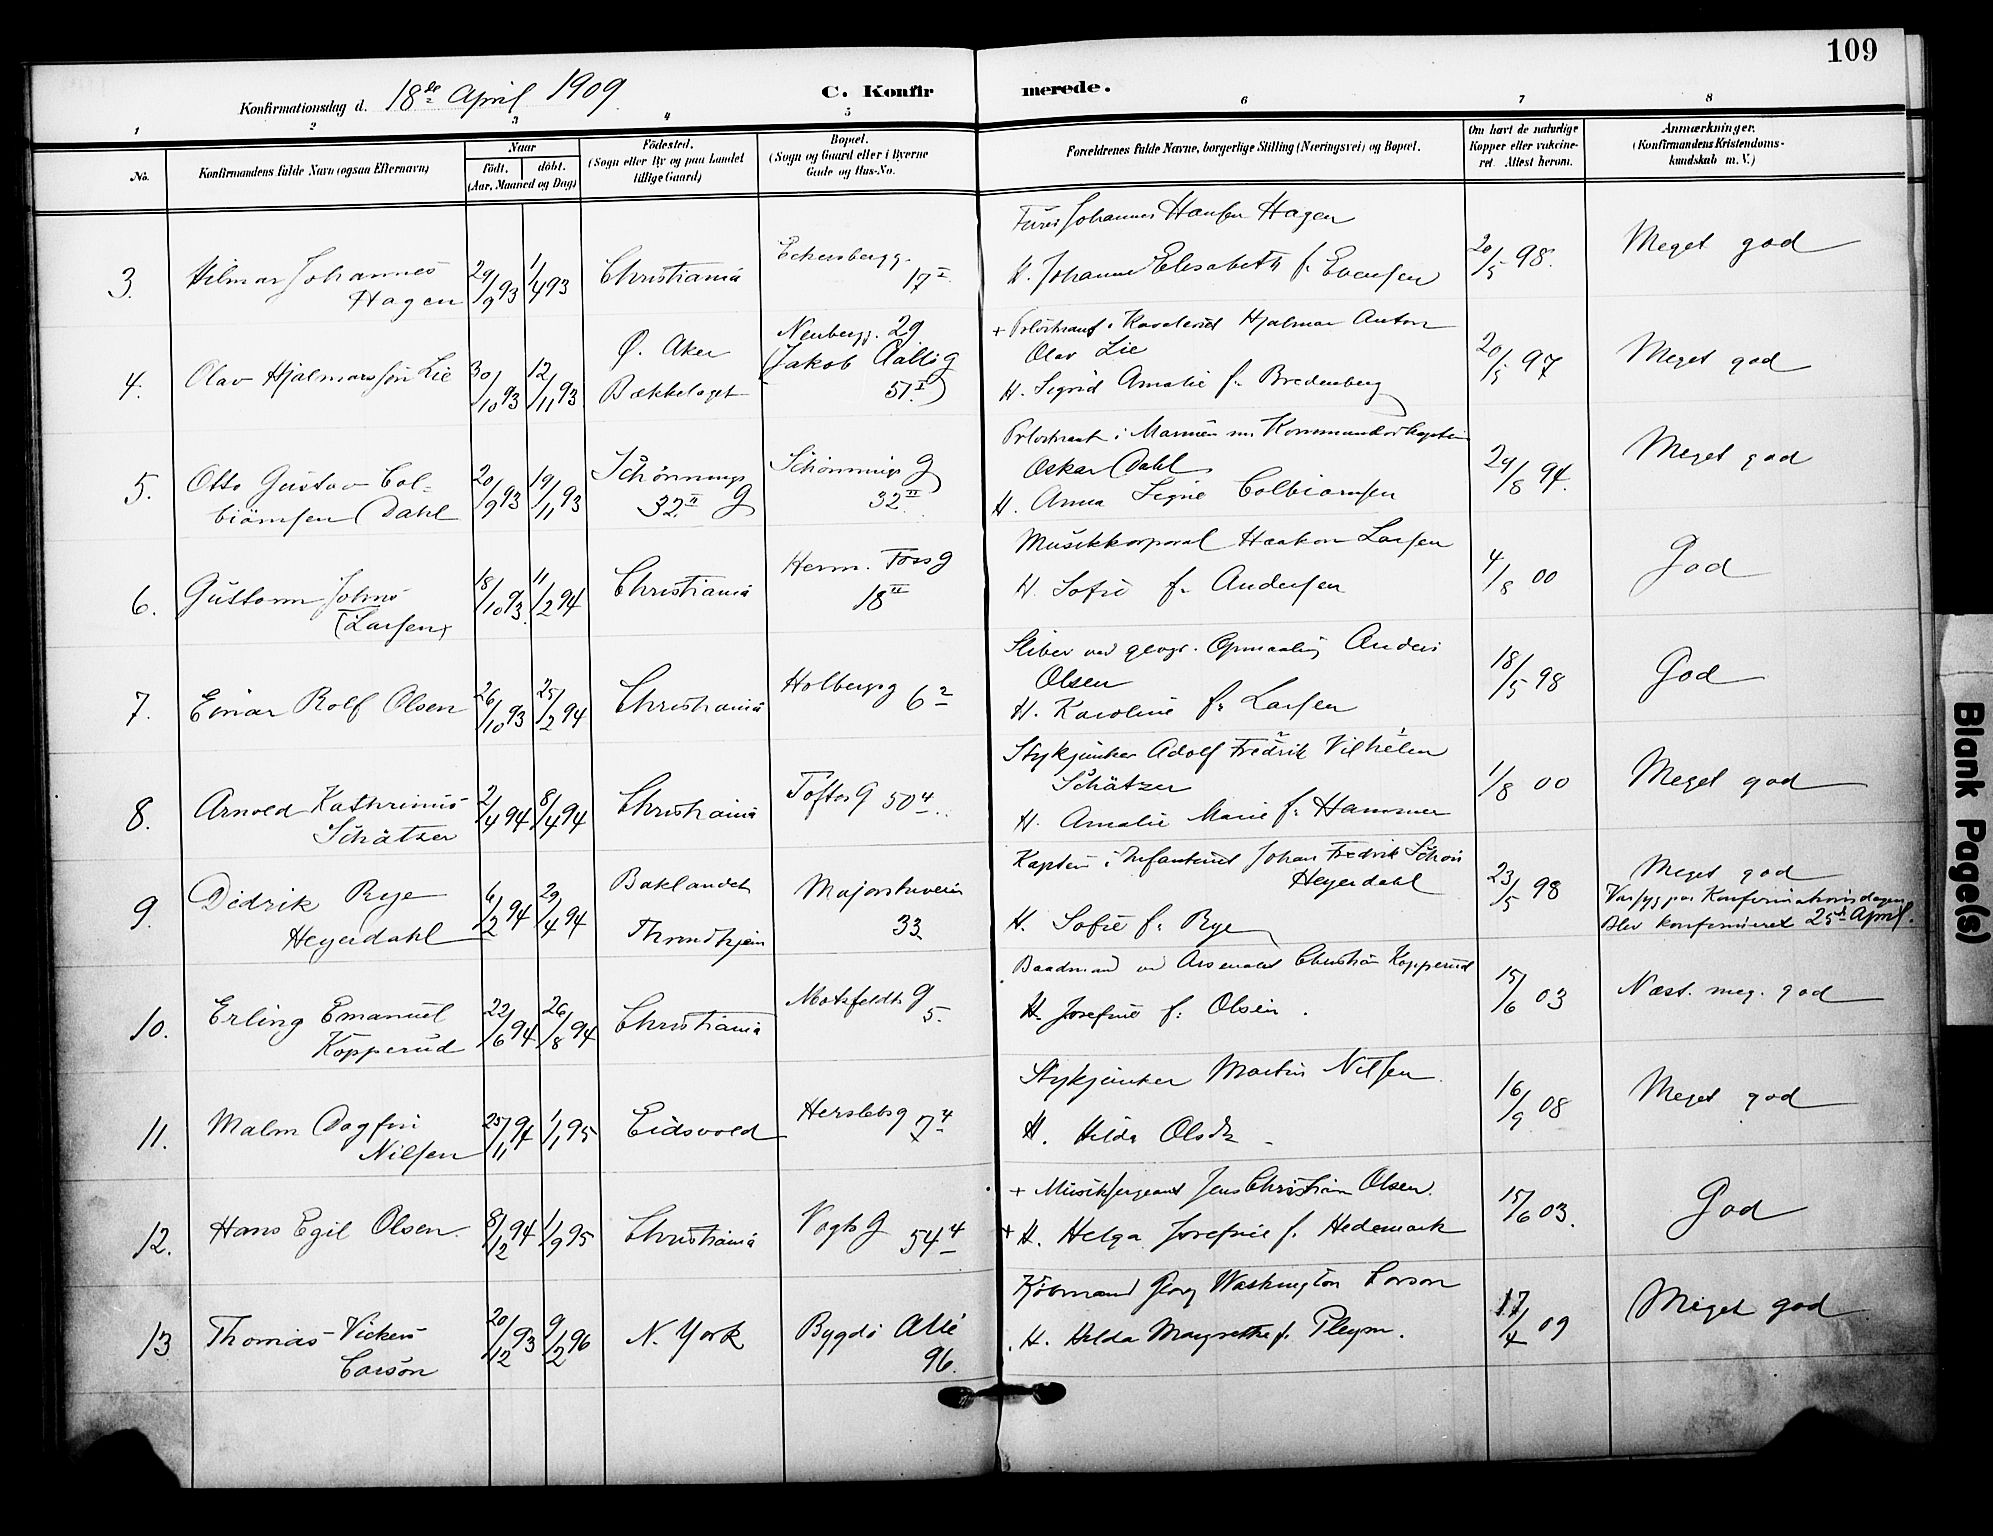 109
Konfirmationsdag d. 18de April 1909
C. Konfirmerede.
1 2 3 4 5 6 7 8
No.
Konfirmandens fulde Navn (ogsaa Efternavn)
Naar
født. døbt.
(Aar, Maaned og Dag)
Fødested.
(Sogn eller By og paa Landet
tillige Gaard)
Bopæl.
(Sogn og Gaard eller i Byerne
Gade og Hus-No.
Forældrenes fulde Navne, borgerlige Stilling (Næringsvei) og Bopæl.
Om havt de naturlige
Kopper eller vakcine-
ret. Attest herom.
Anmærkninger.
(Konfirmandens Kristendoms-
kundskab m. V.)
3. Hilmar Johannes
Hagen
29/9 93 1/4 93
Christiania
Eckersbergg.
17 I
Johannes Hansen Hagen
H. Johanne Elisabeth f. Evensen
20/5 98.
Meget god
4. Olav Hjalmarssøn Lie
30/10 93 12/11 93
Ø. Aker
Bækkelaget
Neubergg. 29
(Jakob Aallsg
51 I)
+ Prløitnant i Kavaleriet Hjalmar Anton
Olav Lie
H. Sigrid Amalie f. Bredenberg
20/5 97
Meget god
5. Otto Gustav Col-
biørnsen Dahl
20/9 93 19/11 93
Schønnings
32 II G
Schønnings G
32 II
Prløitnant i Marinen m. Kommandørkaptein
Oskar Dahl
H. Anna Signe Colbiørnsen
29/8 94.
Meget god
6. Guttorm Johns
(Larsen)
18/10 93. 11/2 94
Christiania
Herm. Fossg
18 II
Musikkorporal Haakon Larsen
H. Sofie f. Andersen
4/8 00
God
7. Einar Rolf Olsen
26/10 93 25/2 94
Christiania
Holbergsg 6 2
Sliber ved geogr. Opmaaling Anders
Olsen
H. Karoline f. Larsen
18/5 98
God
8. Arnold Kathrinus
Schätzer
2/4 94 8/4 94
Christiania
Toftesg 50 4
Stykjunker Adolf Fredrik Vilhelm
Schätzer
H. Amalie Marie f. Hammer
1/8 00
Meget god
9. Didrik Rye
Heyerdahl
6/2 94 29/4 94
Baklandet
Throndhjem
Majorstuveien
33
Kaptein i Infanteriet Johan Fredrik Schou
Heyerdahl
H. Sofie f. Rye
23/5 98
Meget god
Var syg paa Konfirmationsdagen
Blev konfirmeret 25de April.
10. Erling Emanuel
Kopperud
22/6 94 26/8 94
Christiania
Motzfeldts G
5.
Baadmand ved Arsenalet Christian Kopperud
H. Josefine f. Olsen.
15/6 03
Næst. meg. god
11. Malm Dagfin
Nilsen
25/11 94 1/1 95
Eidsvold
Herslebsg 7 4
Stykjunker Martin Nilsen
H. Hilda Olsdtr
16/9 08
Meget god
12. Hans Egil Olsen.
8/12 94 1/9 95
Christiania
Vogts G 54 4
+ Musiksergeant Jens Christian Olsen.
+ H. Helga Josefine f. Hedemark
15/6 03.
God
13 Thomas Vickers
Carson
20/12 93 9/2 96
N. York
Bygdø Allé
96.
Kjøbmand Georg Washington Carson
H. Hilda Margrethe f. Pleym.
17/4 09
Meget god
Blank Page(s)